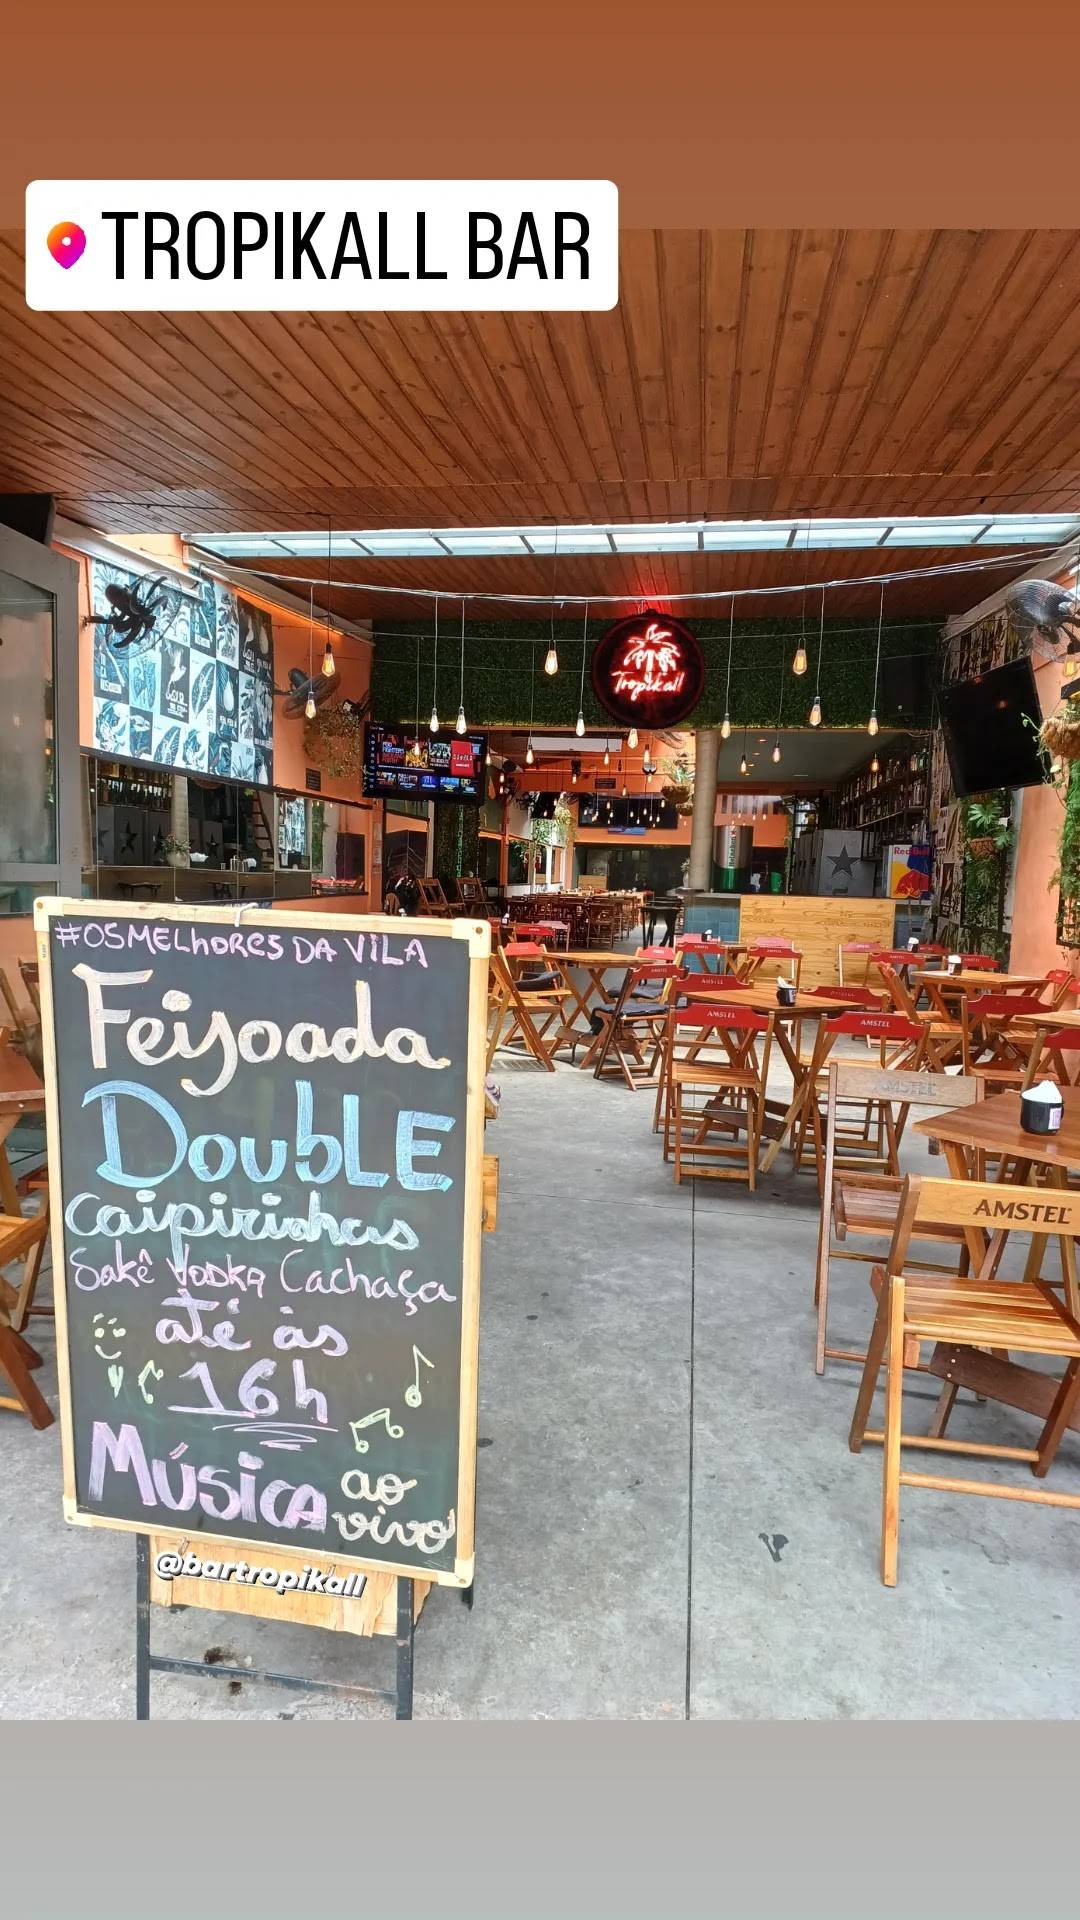 TROPIKALL BAR
Tropikall
Red Bull
#OSMELhORES DA VILA
Feijoada
DoubLE
Caipirinhas
Sakê Vodka Cachaça
até às
16h
Música ao vivo
@bartropikall
AMSTEL
AMSTEL
AMSTEL
AMSTEL